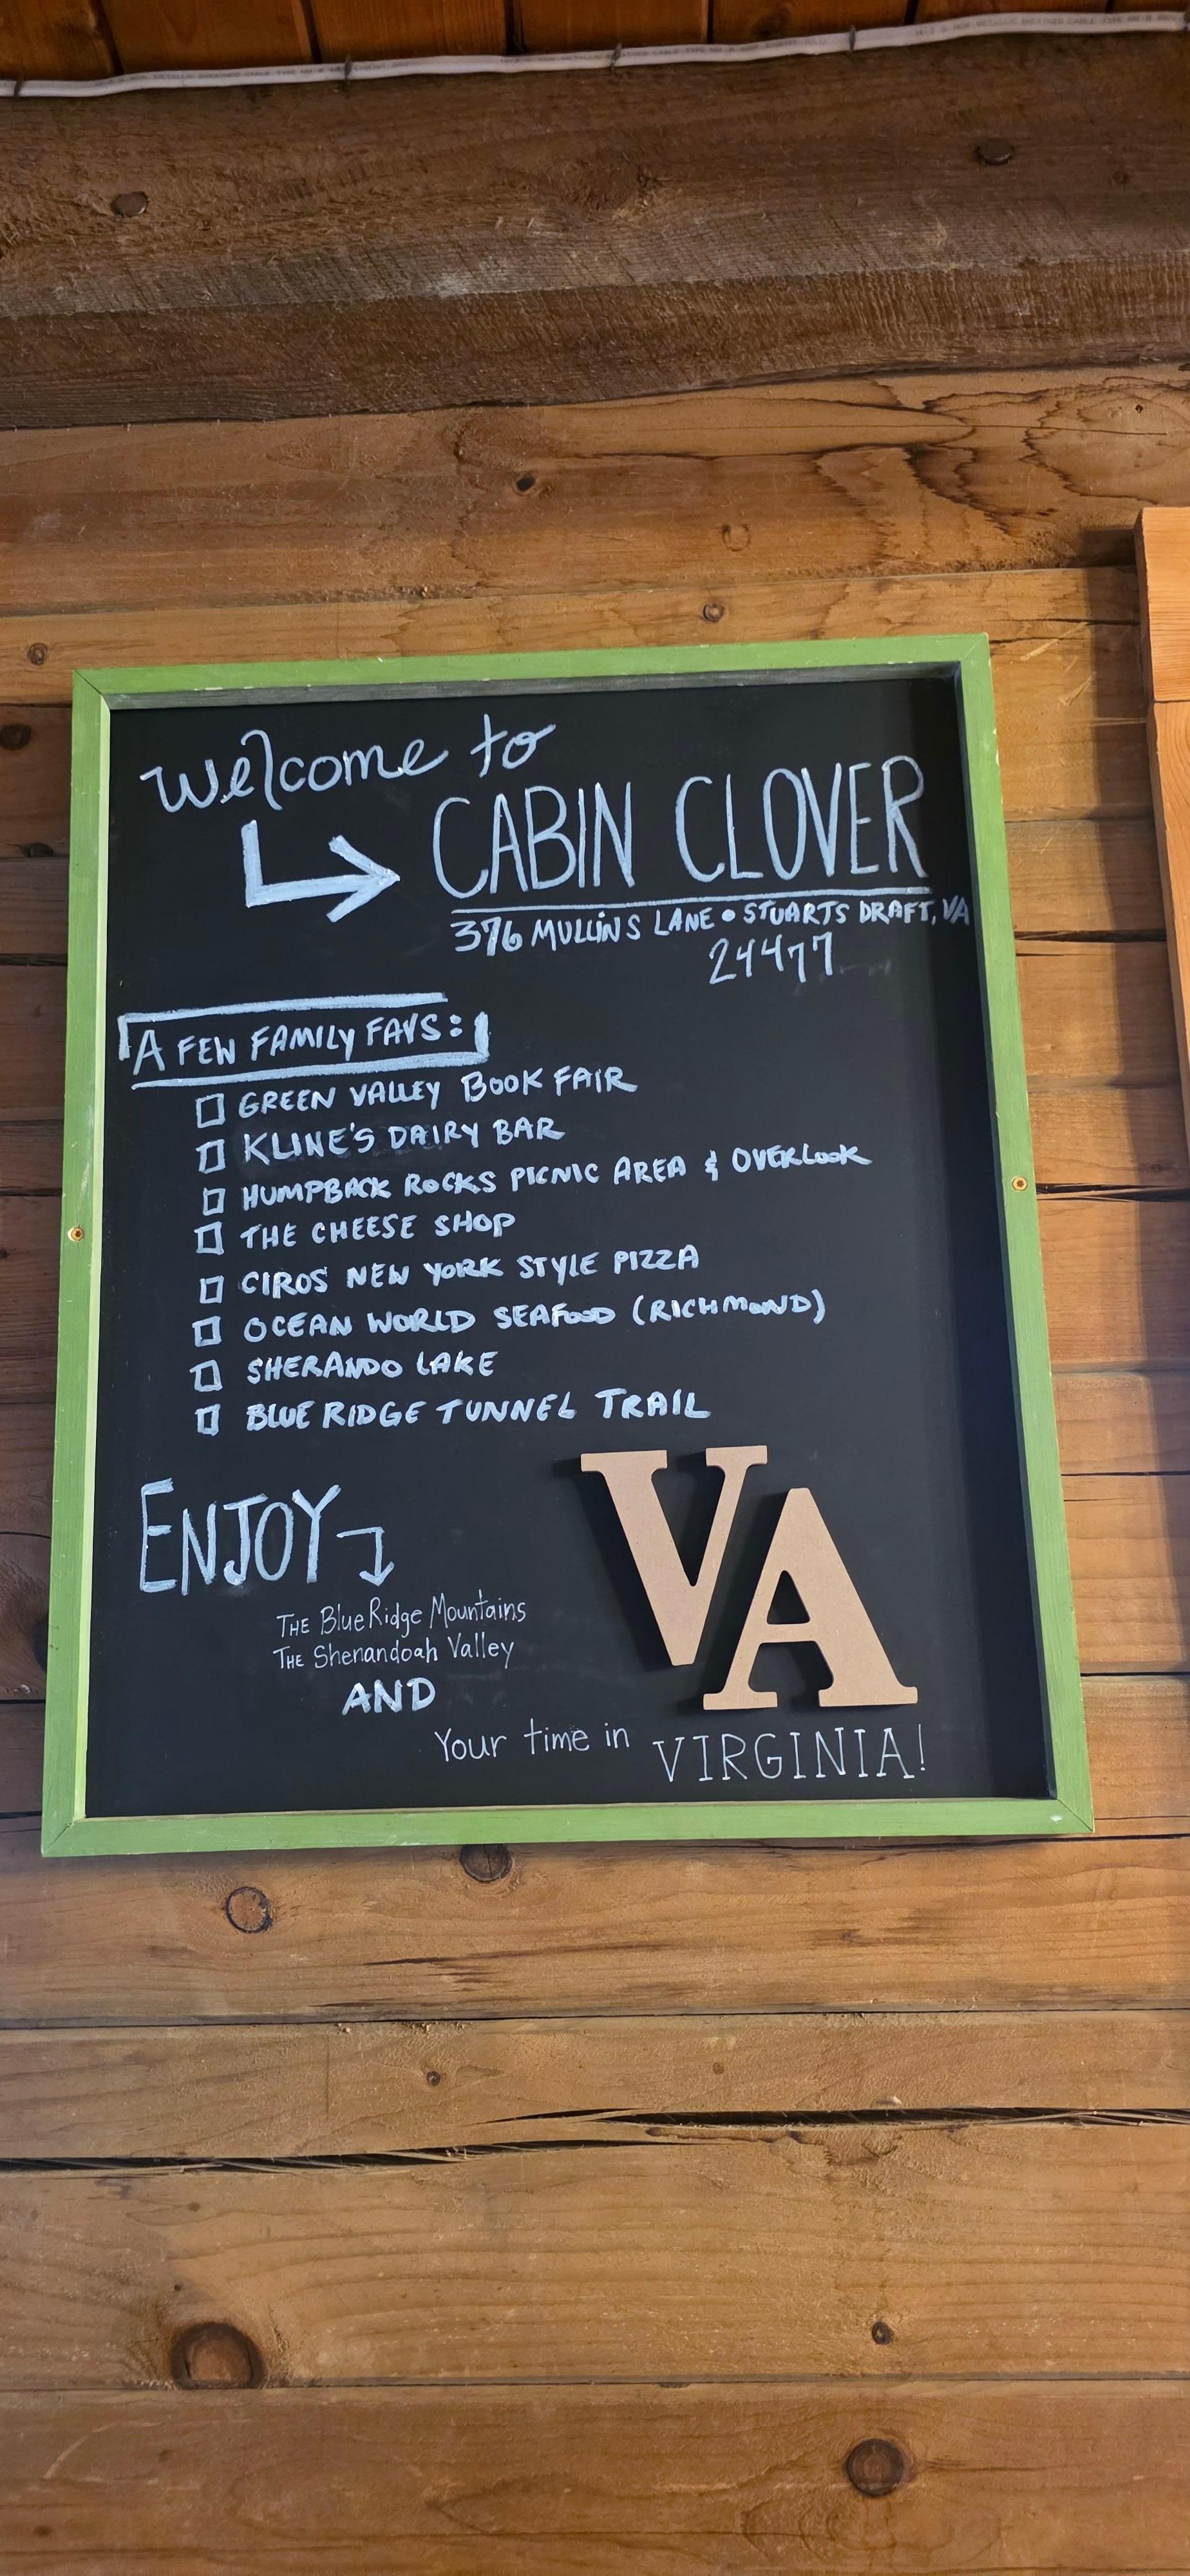 Welcome to
CABIN CLOVER
376 MULLINS LANE • STUARTS DRAFT, VA
24477
A FEW FAMILY FAVS:
☐ GREEN VALLEY BOOK FAIR
☐ KLINE'S DAIRY BAR
☐ HUMPBACK ROCKS PICNIC AREA & OVERLOOK
☐ THE CHEESE SHOP
☐ CIROS NEW YORK STYLE PIZZA
☐ OCEAN WORLD SEAFOOD (RICHMOND)
☐ SHERANDO LAKE
☐ BLUE RIDGE TUNNEL TRAIL
ENJOY
THE Blue Ridge Mountains
THE Shenandoah Valley
AND
VA
Your time in VIRGINIA!